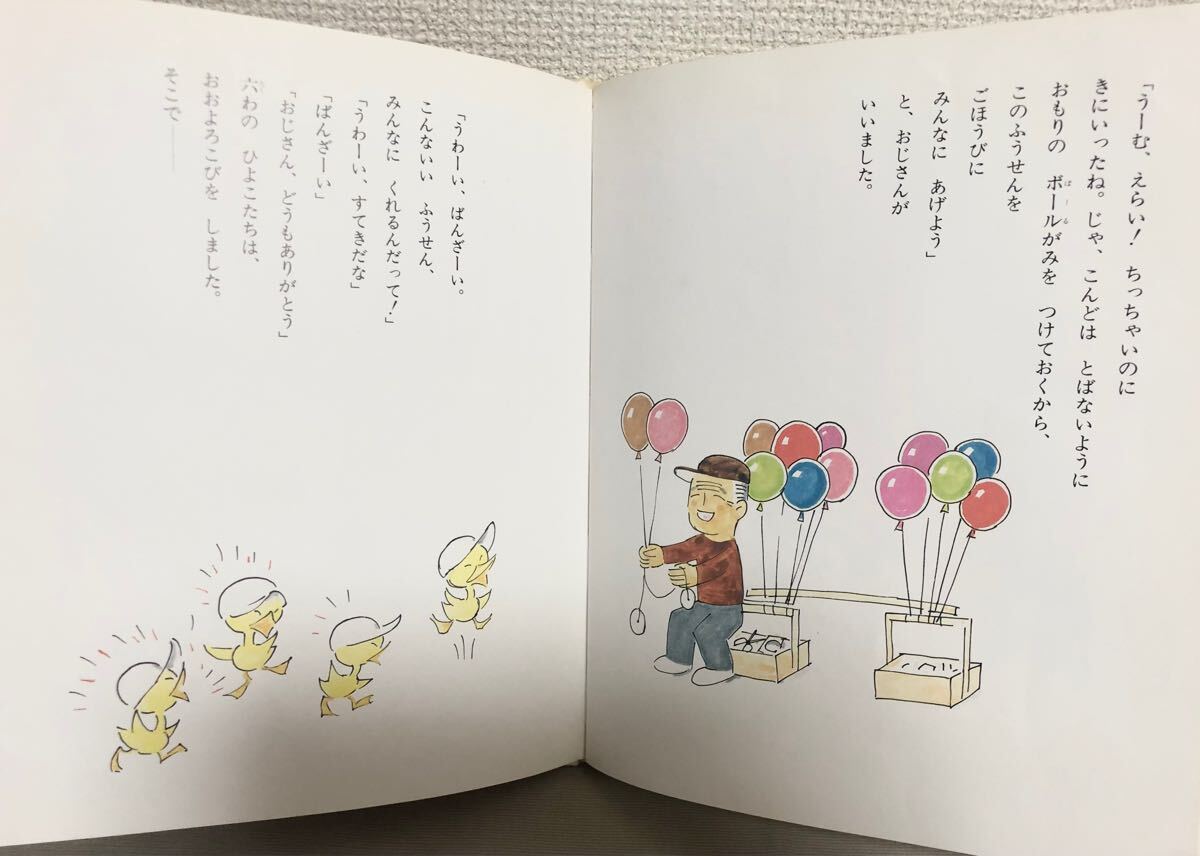 「うーむ、えらい！ ちっちゃいのに
きにいったね。じゃ、こんどは とばないように
おもりの ボールがみを つけておくから、
このふうせんを
ごほうびに
みんなに あげよう」
と、おじさんが
いいました。
「うわーい、ばんざーい。
こんないい ふうせん、
みんなに くれるんだって！」
「うわーい、すてきだな」
「ばんざーい」
「おじさん、どうもありがとう」
六わの ひよこたちは、
おおよろこびを しました。
そこで――